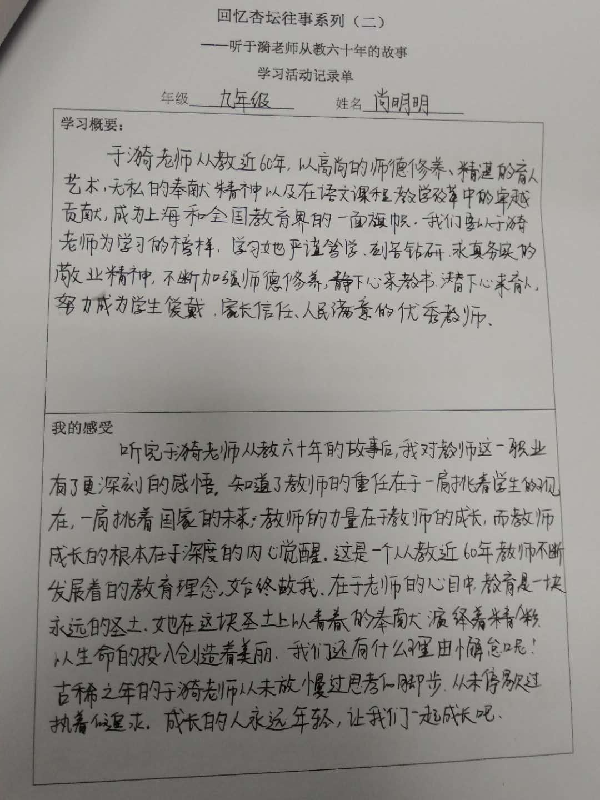 回忆杏坛往事系列（二）
——听于漪老师从教六十年的故事
学习活动记录单
年级 九年级 姓名 尚明明
学习概要：
于漪老师从教近60年，以高尚的师德修养、精湛的育人
艺术，无私的奉献精神以及在语文课程教学改革中的卓越
贡献，成为上海和全国教育界的一面旗帜。我们要以于漪
老师为学习的榜样，学习她严谨笃学，刻苦钻研，求真务实的
敬业精神，不断加强师德修养，静下心来教书，潜下心来育人，
努力成为学生爱戴、家长信任、人民满意的优秀教师。
我的感受
听完于漪老师从教六十年的故事后，我对教师这一职业
有了更深刻的感悟。知道了教师的重任在于一肩挑着学生的现
在，一肩挑着国家的未来；教师的力量在于教师的成长，而教师
成长的根本在于深度的内心觉醒。这是一个从教近60年教师不断
发展着的教育理念，始终故我。在于老师的心目中，教育是一块
永远的圣土，她在这块圣土上以青春的奉献演绎着精彩，
以生命的投入创造着美丽。我们还有什么理由懈怠呢！
古稀之年的于漪老师从未放慢过思考的脚步，从未停歇过
执着的追求。成长的人永远年轻，让我们一起成长吧。